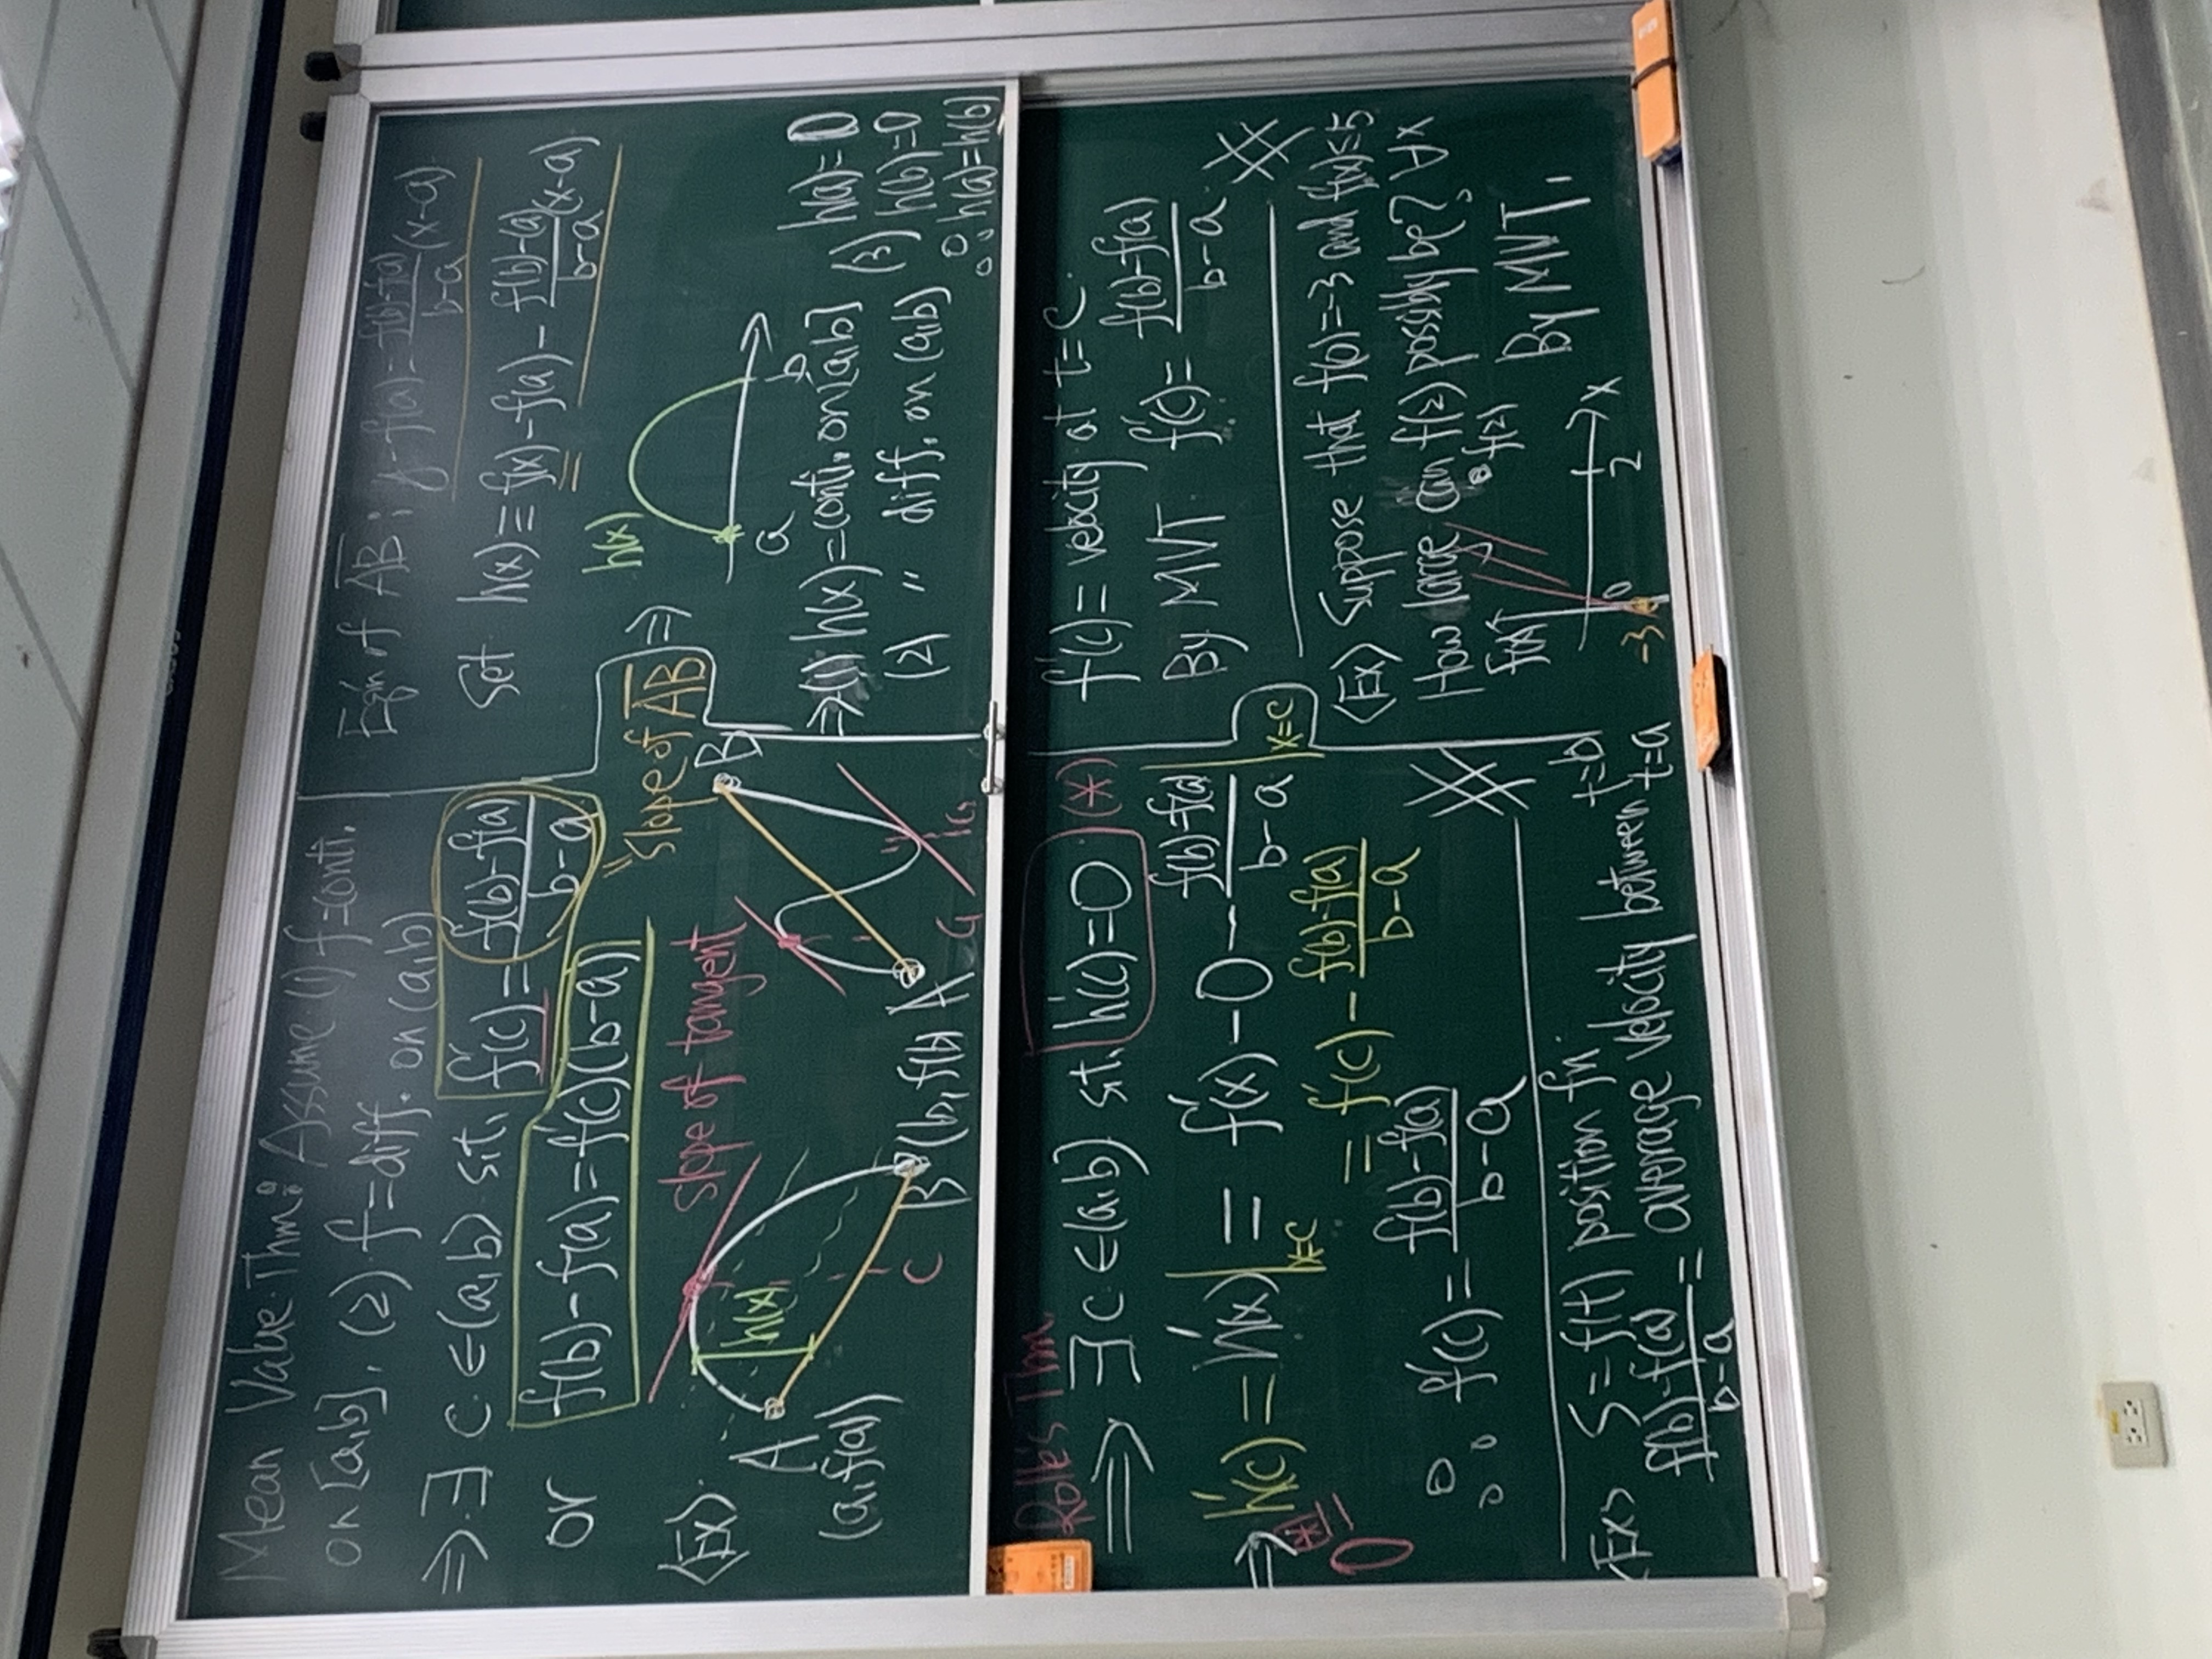 Mean Value Thm: Assume (1) f=conti.
on [a,b], (2) f=diff. on (a,b)
⇒ ∃ c ∈(a,b) s.t. f'(c) = (f(b)-f(a))/(b-a)
or f(b)-f(a)=f'(c)(b-a)
"slope of AB̅
<Ex> slope of tangent
A
h(x)
(a,f(a))
C
B (b,f(b)
A
B
C₁
C₂
Eq'n of AB̅ : y-f(a)=(f(b)-f(a))/(b-a)(x-a)
Set h(x)≡f(x)-f(a)-(f(b)-(a))/(b-a)(x-a)
⇒ h(x)
a
b
⇒(1) h(x)=conti. on [a,b]
(2) " diff. on (a,b)
(3) h(a)=0
h(b)=0
∴ h(a)=h(b)
Rolle's Thm.
⟹ ∃ c ∈(a,b) s.t. h'(c)=0 (*)
⇒ h'(c) = h'(x)|x=c = f'(x)-0-(f(b)-f(a))/(b-a)|x=c
0 (*)
= f'(c)-(f(b)-f(a))/(b-a)
∴ f'(c)=(f(b)-f(a))/(b-a)
<Ex> S=f(t) position fn.
(f(b)-f(a))/(b-a) = average velocity between t=b t=a
f'(c)= velocity at t=c.
By MVT f'(c)=(f(b)-f(a))/(b-a)
<Ex> Suppose that f(0)=-3 and f'(x)≤5
How large can f(2) possibly be? ∀x
f(x)
f(2)
By MVT,
0
2
x
-3